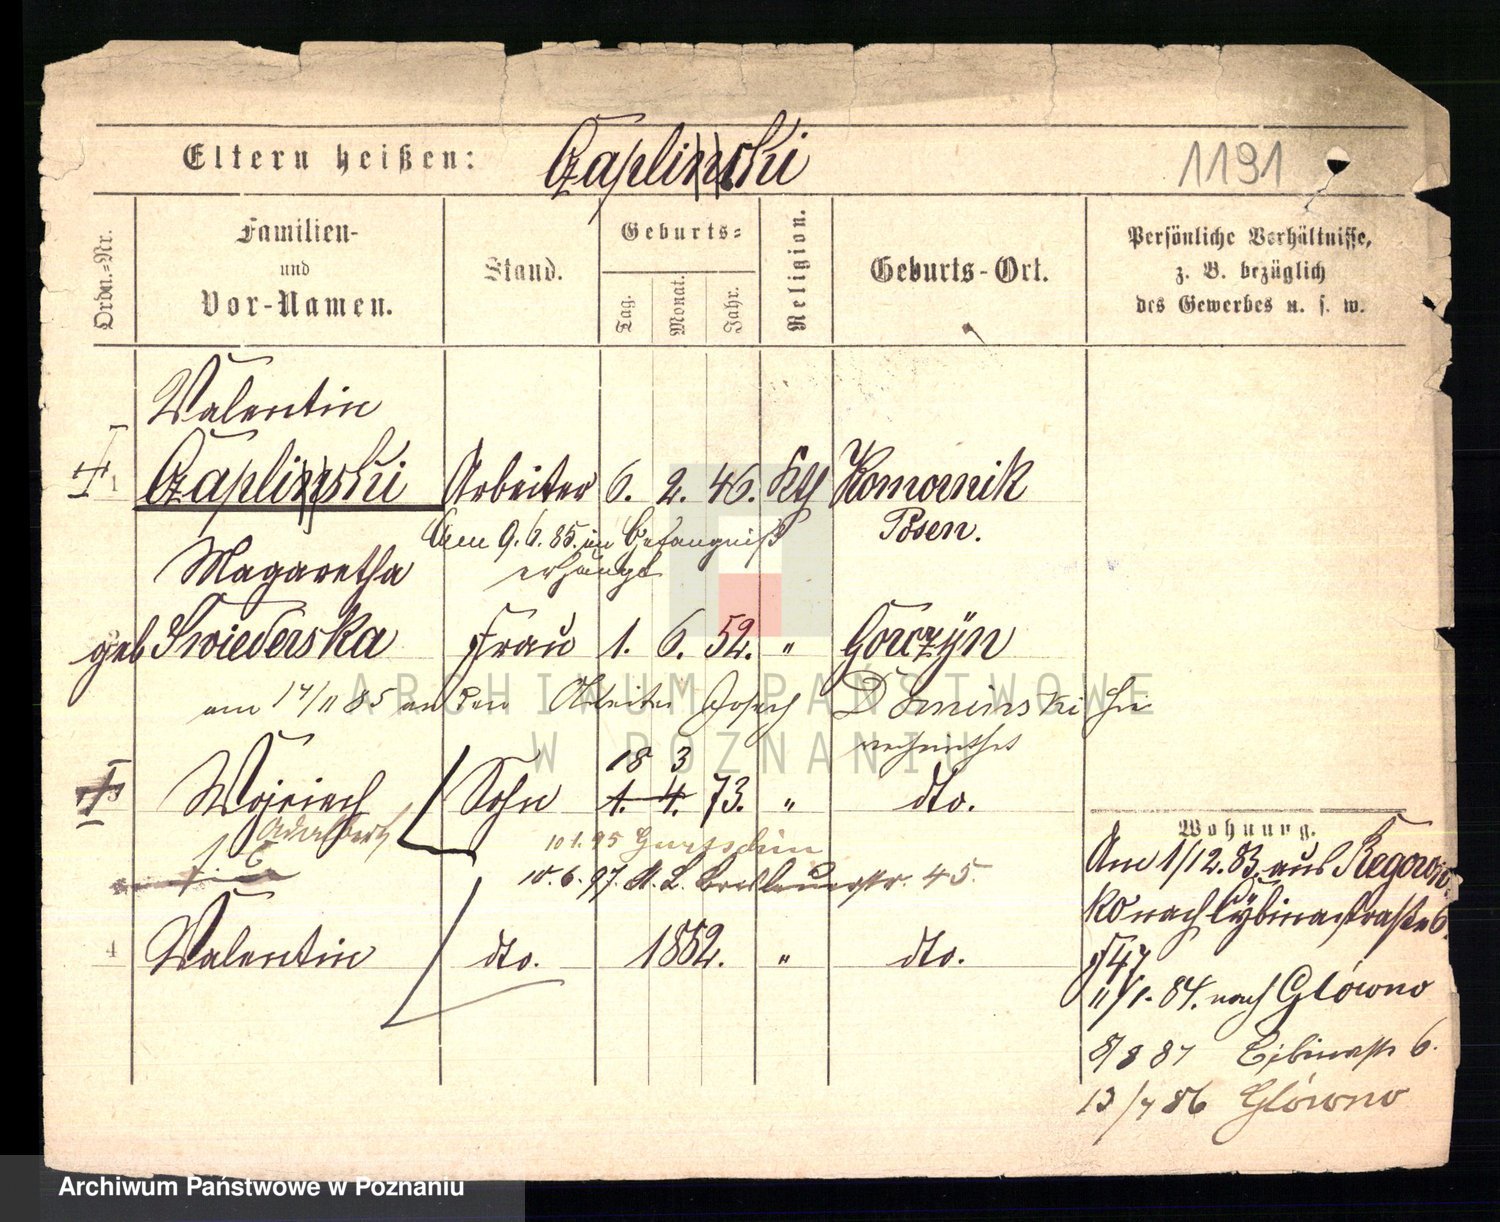 Eltern heißen: Czaplinski 1191
Ordn.-Nr.
Familien-
und
Vor-Namen.
Stand.
Geburts-
Tag.
Monat.
Jahr.
Religion.
Geburts-Ort.
Persönliche Verhältnisse,
z. B. bezüglich
des Gewerbes u. s. w.
Valentin
1 Czaplinski Arbeiter 6. 2. 46. Kth Komornik
Posen.
Am 9.6.85. im Gefängniß
erhängt
Magaretha
geb Swiederska Frau 1. 6. 52. " Gorczyn
am 17/11 85 an den Arbeiter Joseph
verheirathet
18 3
3 Wojciech Sohn 1. 4. 73. " dto.
Adalbert
10 1. 95 Gurtschin
10. 6. 97. Breslauerstr. 45
4 Valentin dto. 1882. " dto.
Wohnung.
Am 1/12. 83. aus Regorow-
ko nach Cybinastraße 6.
F47
11/1. 84. nach Główno
8/8 87 Cibinastr 6.
13/7 86 Główno
ARCHIWUM PAŃSTWOWE
W POZNANIU
Archiwum Państwowe w Poznaniu